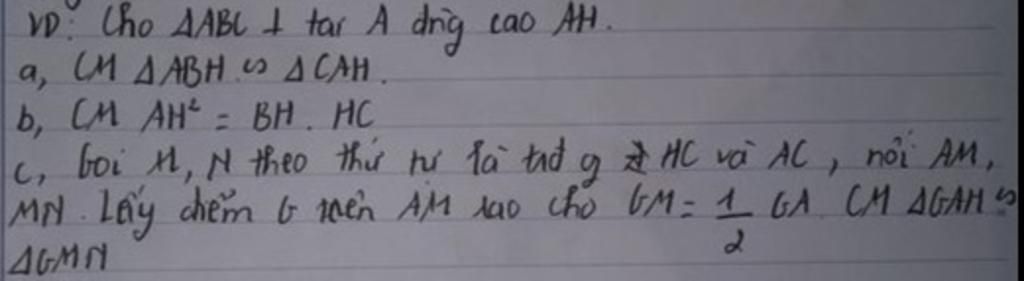 VD: Cho ΔABC ⊥ tại A đg cao AH.
a, CM ΔABH ∽ ΔCAH.
b, CM AH² = BH. HC
c, Gọi M, N theo thứ tự là tđ g HC và AC, nối AM,
MN. Lấy điểm G trên AM sao cho GM = 1/2 GA CM ΔGAH ∽
ΔGMN